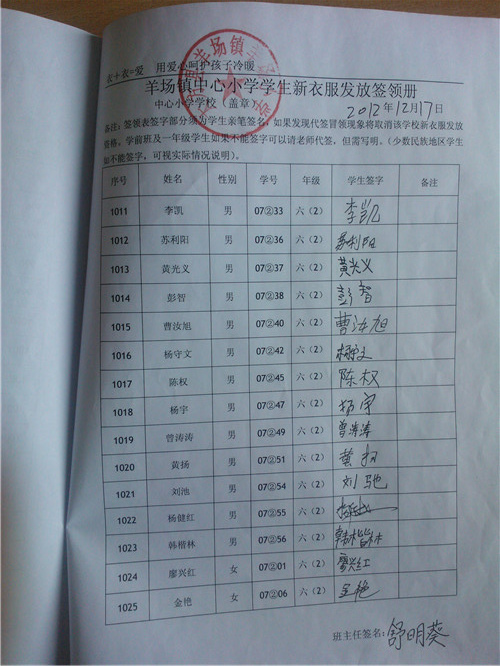 衣+衣=爱 用爱心呵护孩子冷暖
羊场镇中心小学学生新衣服发放签领册
中心小学学校（盖章） 2012年12月17日
备注：签领表签字部分须为学生亲笔签名，如果发现代签冒领现象将取消该学校新衣服发放
资格，学前班及一年级学生如果不能签字可以请老师代签，但需写明。（少数民族地区学生
如不能签字，可视实际情况说明）。
序号 姓名 性别 学号 年级 学生签字 备注
1011 李凯 男 07②33 六（2） 李凯
1012 苏利阳 男 07②36 六（2） 苏利阳
1013 黄光义 男 07②37 六（2） 黄光义
1014 彭智 男 07②38 六（2） 彭智
1015 曹汝旭 男 07②40 六（2） 曹汝旭
1016 杨守文 男 07②42 六（2） 杨守文
1017 陈权 男 07②45 六（2） 陈权
1018 杨宇 男 07②47 六（2） 杨宇
1019 曾涛涛 男 07②49 六（2） 曾涛涛
1020 黄扬 男 07②51 六（2） 黄扬
1021 刘池 男 07②54 六（2） 刘驰
1022 杨健红 男 07②55 六（2）
1023 韩楷林 男 07②56 六（2） 韩楷林
1024 廖兴红 女 07②01 六（2） 廖兴红
1025 金艳 女 07②06 六（2） 金艳
班主任签名：舒明葵